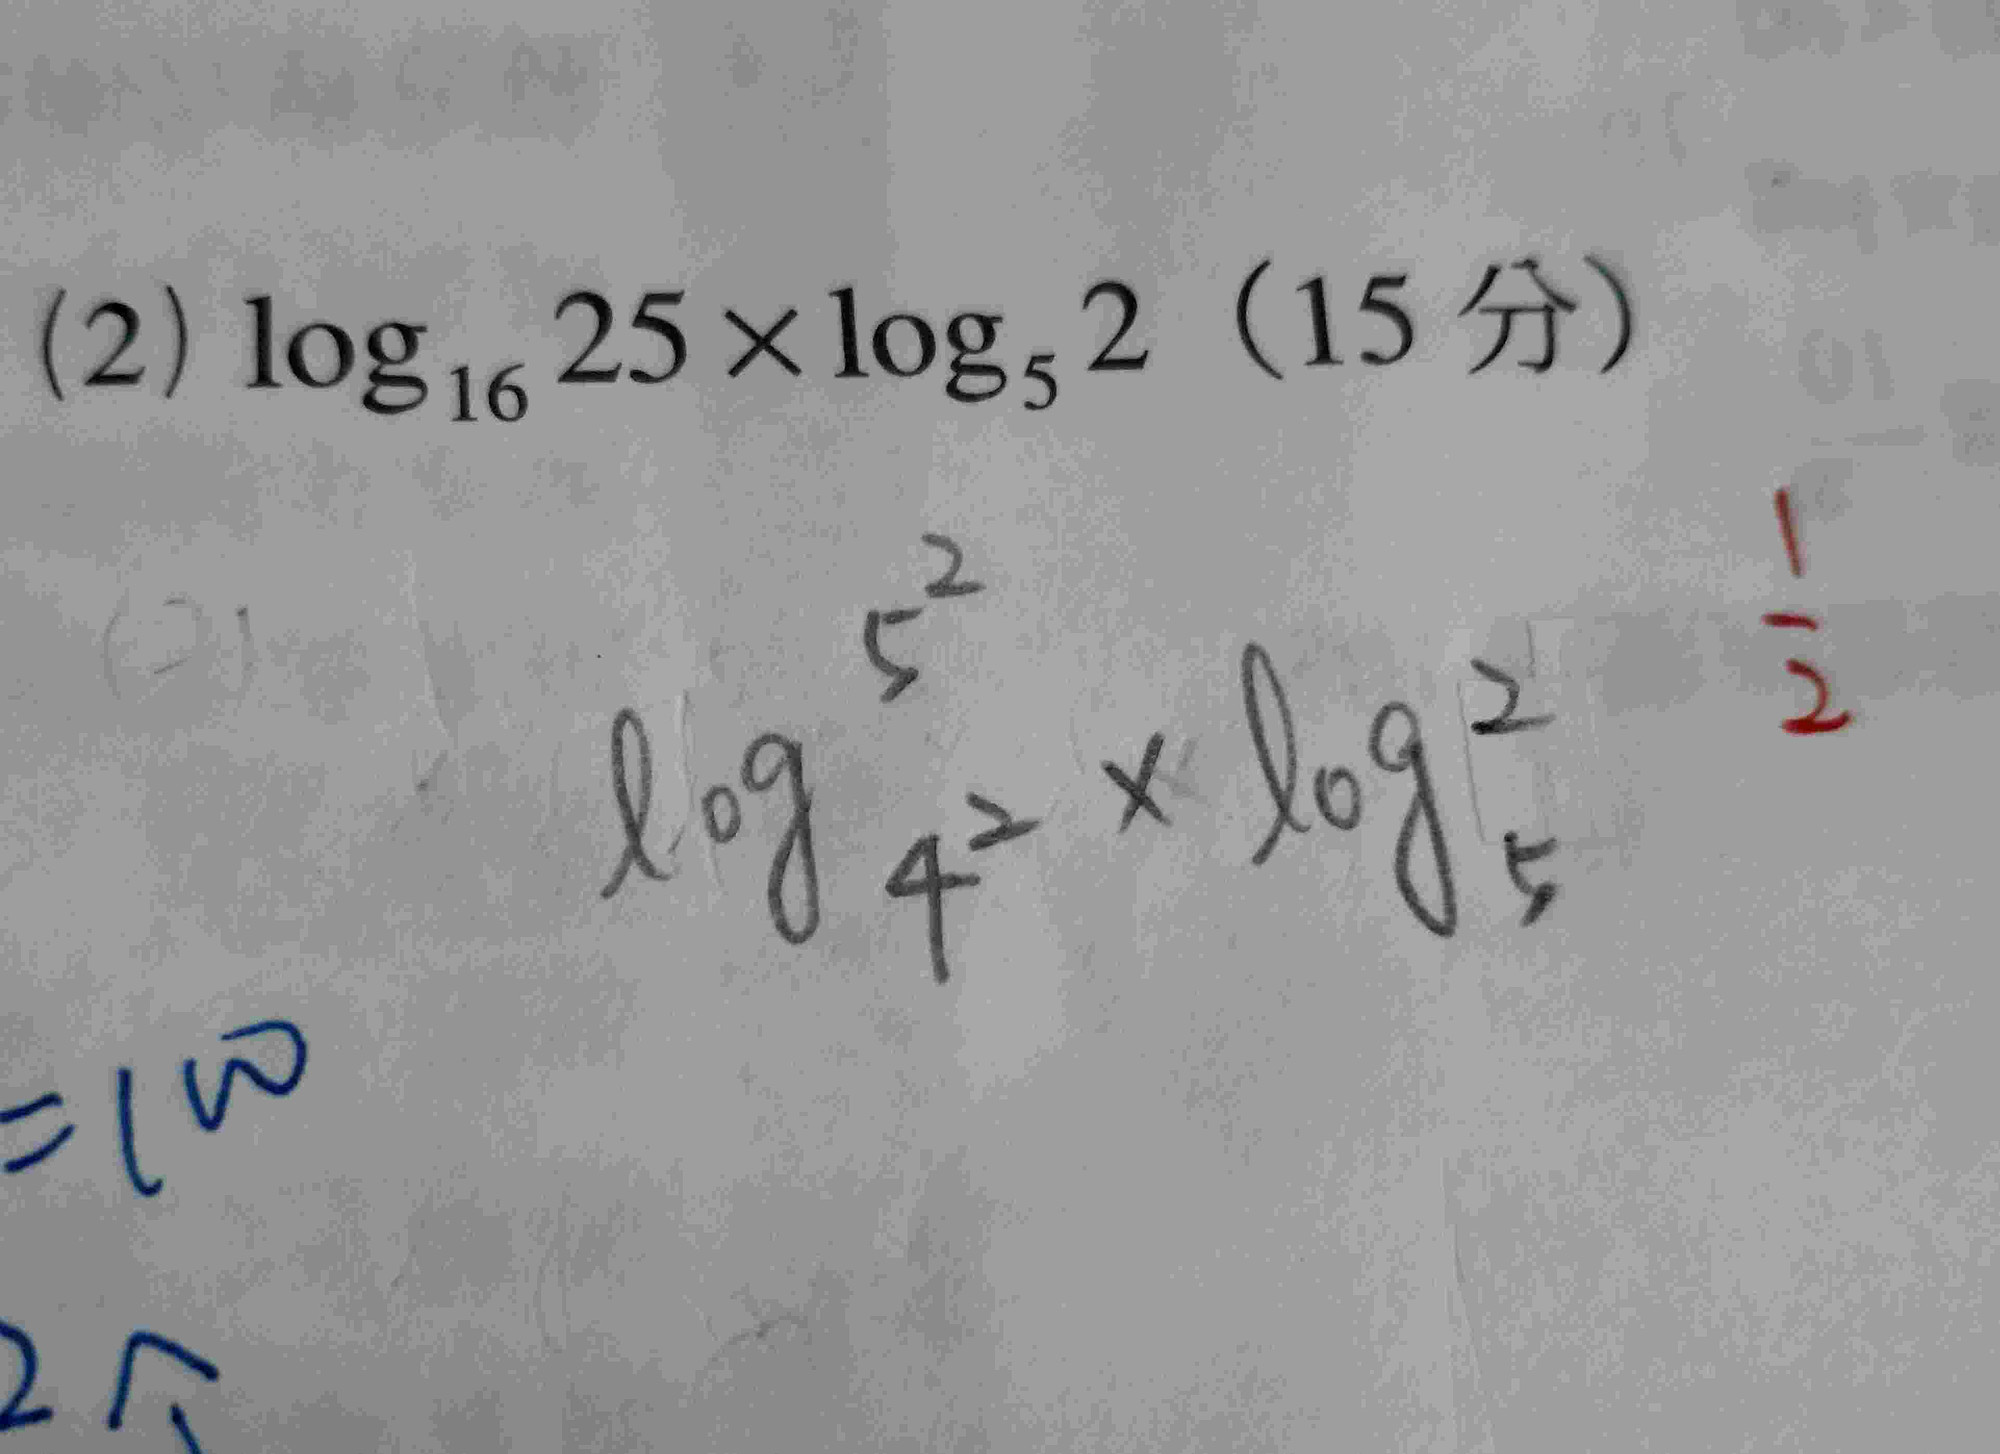 (2) log₁₆ 25 × log₅ 2 (15 分)
1/2
log₄² 5² × log₅ 2
=100
2个